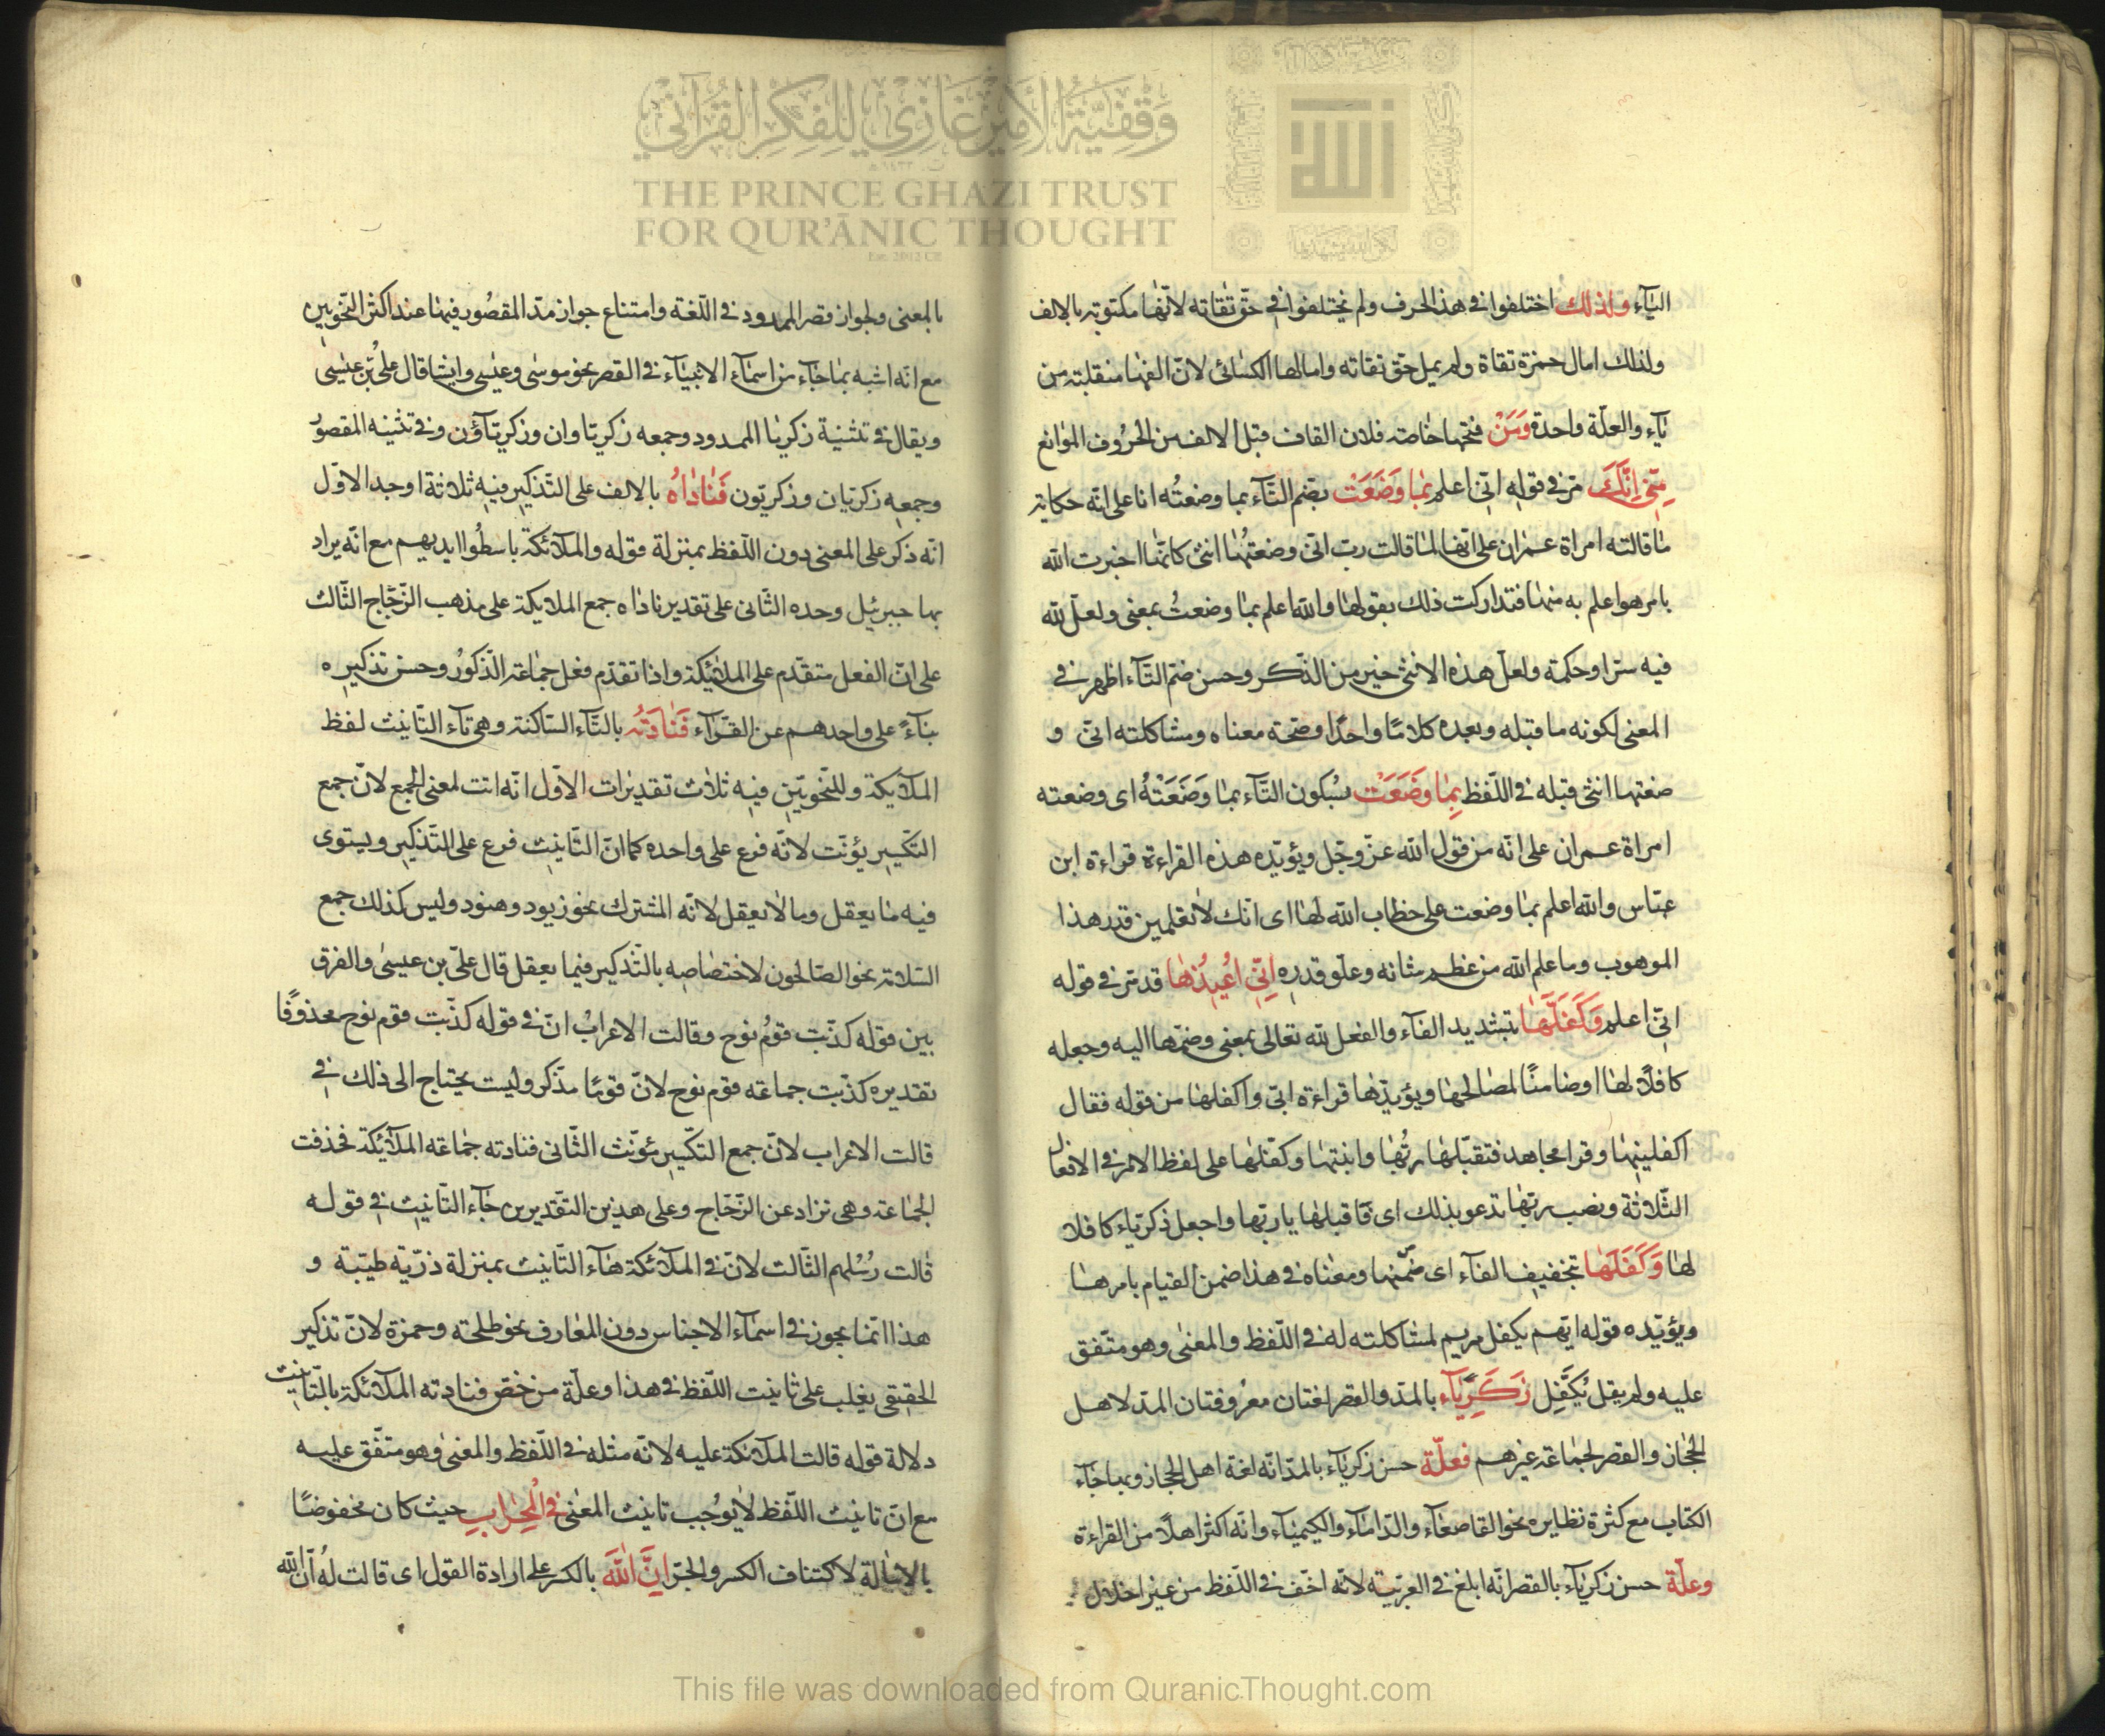 وقفية الأمير غازي للفكر القرآني
THE PRINCE GHAZI TRUST
FOR QUR'ĀNIC THOUGHT
Est. 2012 CE
الله
اليآء ولذلك اختلفوا في هذ الحرف ولم يختلفوا في حق تقاته لانها مكتوبة بالالف
ولذلك امال حمزة تقاة ولم يمل حق تقاته وامالها الكسائى لان الفها منقلبة من
يآء والعلّة واحدة ومن فتحها خاصة فلان القاف قبل الالف من الحروف الموانع
مِنّى اِنَّكَ مرّ في قوله انّى اعلم بِمَا وَضَعَتْ بضم التّآء بما وضعتُه انا على انّه حكاية
ما قالته امراة عمران على انها لما قالت رب انى وضعتُها انثى كانّها اخبرت الله
بامر هو اعلم به منها فتداركت ذلك بقولها والله اعلم بما وضعتُ بمعنى ولعلّ لله
فيه سترا وحكمة ولعل هذه الانثى خير من الذّكر وحسن ضم التّآء اظهر في
المعنى لكونه ما قبله وبعده كلامًا واحدًا وصحّة معناه ومشاكلته انّى و
ضعتها انثى قبله في اللّفظ بِمَا وَضَعَتْ بسُكون التّآء بما وَضَعَتْهُ اى وضعته
امراة عمران على انّه من قول الله عزّ وجّل ويؤيّده هذه القراءة قراءة ابن
عبّاس والله اعلم بما وضعت على خطاب الله لها اى انّك لا تعلمين قدر هذا
الموهوب وما علم الله من عظم شانه وعلّو قدره اِنّى اُعِيذُهَا قد مرّ في قوله
انّى اعلم وَكَفَّلَهَا بتشديد الفآء والفعل لله تعالى بمعنى وضمّها اليه وجعله
كافلًا لها اوضامنًا لمصالحها ويؤيّدها قراءة ابى واكفلها من قوله فقال
اكفلينها وقرا مجاهد فتقبّلها ربُّها وانبتها وكفّلها على لفظ الامر في الافعال
الثّلاثة ونصب ربّها تدعو بذلك اى فاقبلها يا ربّها واجعل ذكريّاء كافلا
لها وَكَفَلَهَا بتخفيف الفآء اى ضمنها ومعناه في هذا ضمن القيام بامرها
ويؤيّده قوله ايّهم يكفل مريم لمشاكلته له في اللّفظ والمعنى وهو متّفق
عليه ولم يقل يُكَفِّل زَكَرِيَّآء بالمدّ والقصر لغتان معرُوفتان المدّ لاهل
الحجاز والقصر لجماعة غيرهم فعلّة حسن زكريآء بالمدّ انّه لغة اهل الحجاز وبها جآء
الكتاب مع كثرة نظايره نحو القاصعآء والدّامآء والكيميآء وانّه اكثر اهلًا من القراءة
وعلّة حسن زكريآء بالقصر انّه ابلغ في العربيّة لانّه اخّف في اللّفظ من غير اخلال
بالمعنى ولجواز قصر الممدود في اللّغة وامتناع جواز مدّ المقصُور فيها عند اكثر النّحويّين
مع انّه اشبه بما جآء من اسمآء الانبيآء في القصر نحو موسى وعيسى وايضا قال علىُّ بن عيسى
ويقال في تثنية زكريا الممدود وجمعه زكريّاوان وزكريّآؤن وفي تثنيه المقصوُر
وجمعه زكريّان وزكريّون فَنَادَاهُ بالالف على التّذكير فيه ثلاثة اوجه الاوّل
انّه ذكر على المعنى دون اللّفظ بمنزلة قوله والملآئكة باسطُوا ايديهم مع انّه يراد
بها جبرئيل وحده الثّانى على تقدير ناداه جمع الملايكة على مذهب الزّجّاج الثّالث
على انّ الفعل متقدّم على الملآئيكة واذا تقدّم فعل جماعة الذّكوُر وحسن تذكيره
بنآءً على واحدهم عن القرّآء فَنَادَتْه بالتّآء السّاكنة وهى تآء التّانيث لفظ
الملآيكة وللنّحويّين فيه ثلاث تقديرات الاوّل انّه انث لمعنى الجمع لانّ جمع
التّكسير يؤنّث لانّه فرع على واحده كما انّ التّانيث فرع على التّذكير ويستوى
فيه ما يعقل وما لا يعقل لانّه المشترك نحو زيود وهنود وليس كذلك جمع
السّلامة نحو الصّالحون لاختصاصه بالتّذكير فيما يعقل قال علىّ بن عيسى والفرق
بين قوله كذّبت قومُ نوح وقالت الاعرابُ انّ في قوله كذّبت قوم نوح محذوفًا
تقديره كذّبت جماعة قوم نوح لانّ قومًا مذّكر وليست يحتاج الى ذلك في
قالت الاعراب لانّ جمع التكّسير مؤنّث الثّانى فنادته جماعة الملآيكة فحذفت
الجماعة وهى تراد عن الزّجّاج وعلى هذين التّقديرين جآء التّانيث في قوله
قالت رُسُلهم الثّالث لانّ في الملآئكة هآء التّانيث بمنزلة ذرّيّة طيّبة و
هذا انّما يجوز في اسمآء الاجناس دون المعارف نحو طلحة وحمزة لانّ تذكير
الحقيقى يغلب على تانيث اللّفظ في هذا وعلّة من خصّ فنادته الملآئكة بالتّانيث
دلالة قوله قالت الملآئكة عليه لانّه مثله في اللّفظ والمعنى وهو متّفق عليه
مع انّ تانيث اللّفظ لا يوُجب تانيث المعنى في الْمِحْرَابِ حيث كان مخفوضًا
بالامالة لاكتناف الكسر والجرّ اِنَّ اللهَ بالكسر على ارادة القول اى قالت لهُ انّ الله
This file was downloaded from QuranicThought.com